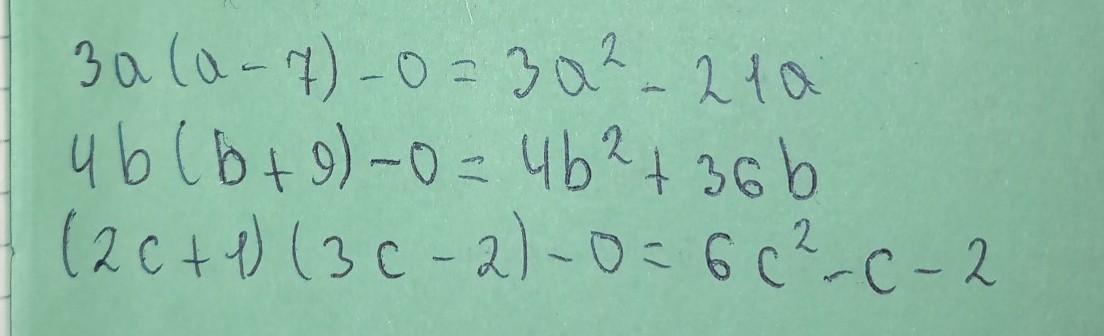 3a(a-7)-0=3a²-21a
4b(b+9)-0=4b²+36b
(2c+1)(3c-2)-0=6c²-c-2